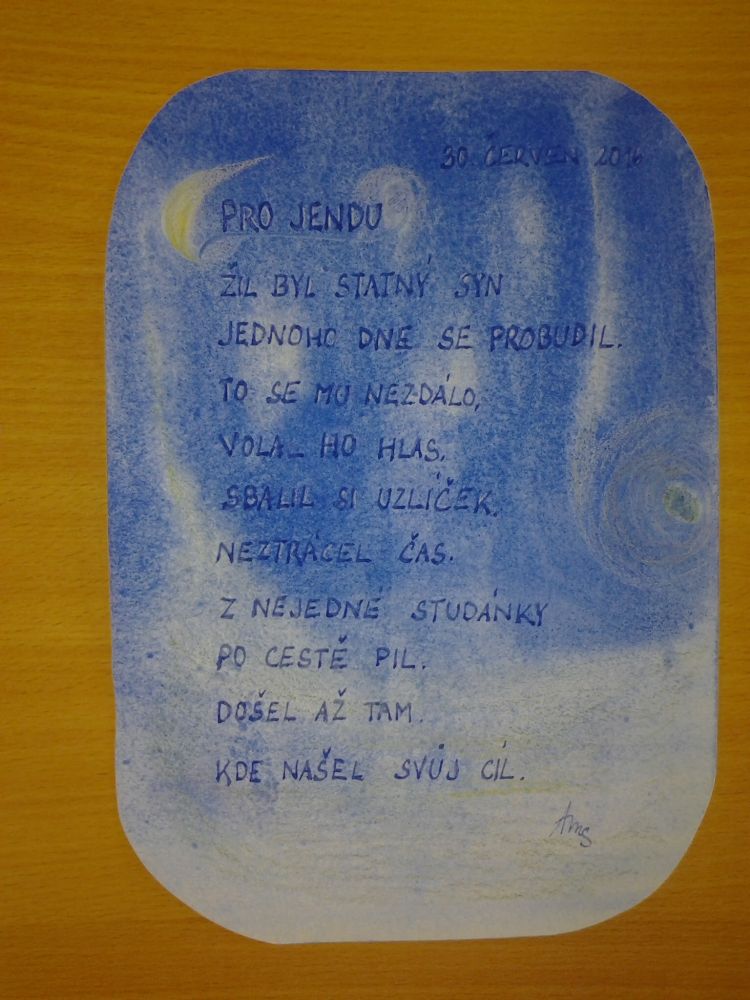 30. ČERVEN 2016
PRO JENDU
ŽIL BYL STATNÝ SYN
JEDNOHO DNE SE PROBUDIL.
TO SE MU NEZDÁLO,
VOLAL HO HLAS.
SBALIL SI UZLÍČEK,
NEZTRÁCEL ČAS.
Z NEJEDNÉ STUDÁNKY
PO CESTĚ PIL.
DOŠEL AŽ TAM.
KDE NAŠEL SVŮJ CÍL.